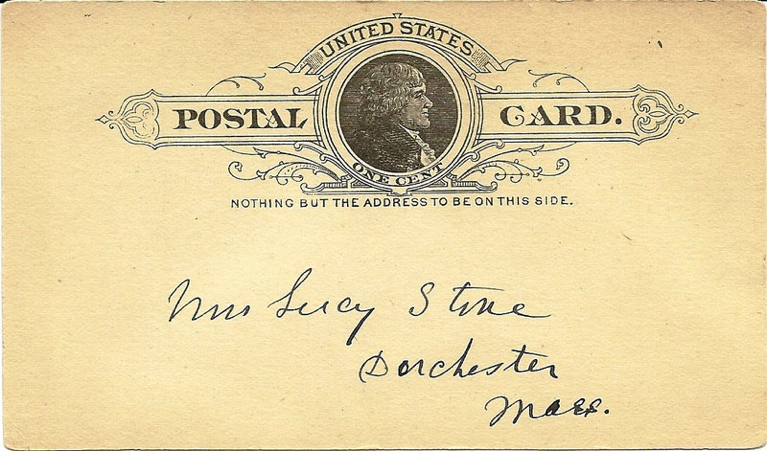 UNITED STATES
POSTAL CARD.
ONE CENT
NOTHING BUT THE ADDRESS TO BE ON THIS SIDE.
Mrs Lucy Stone
Dorchester
Mass.